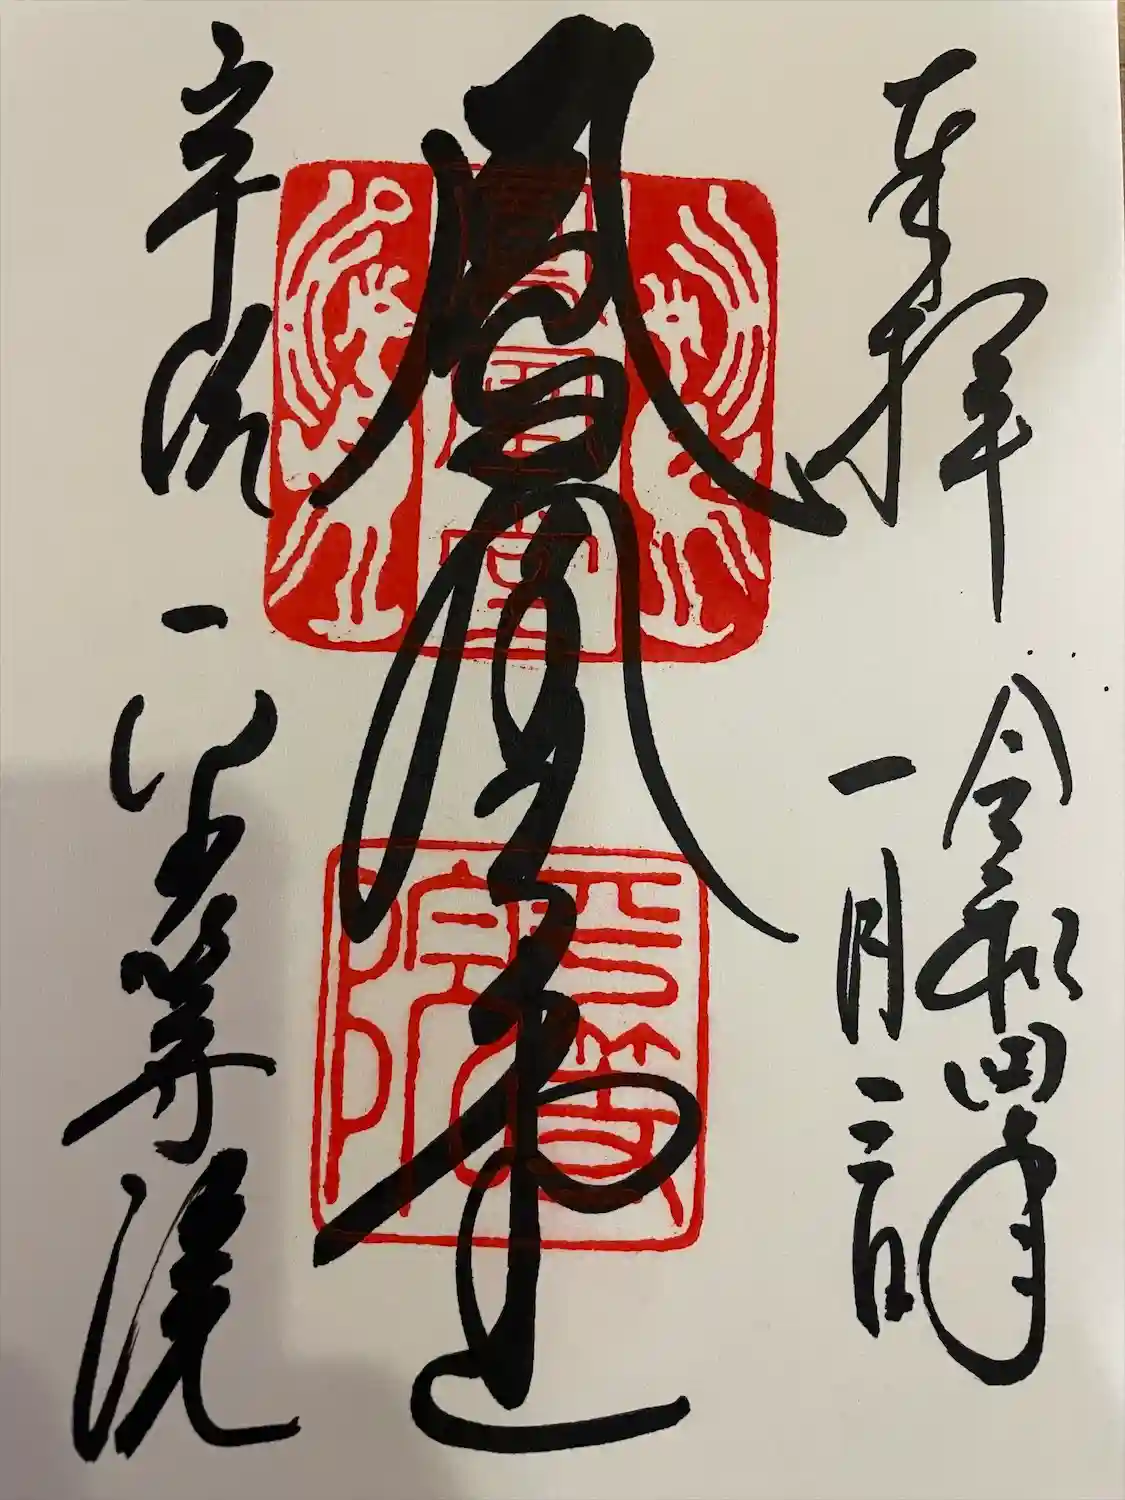 奉拝
令和四年
一月三日
鳳凰堂
鳳凰堂
平等院
宇治
平等院